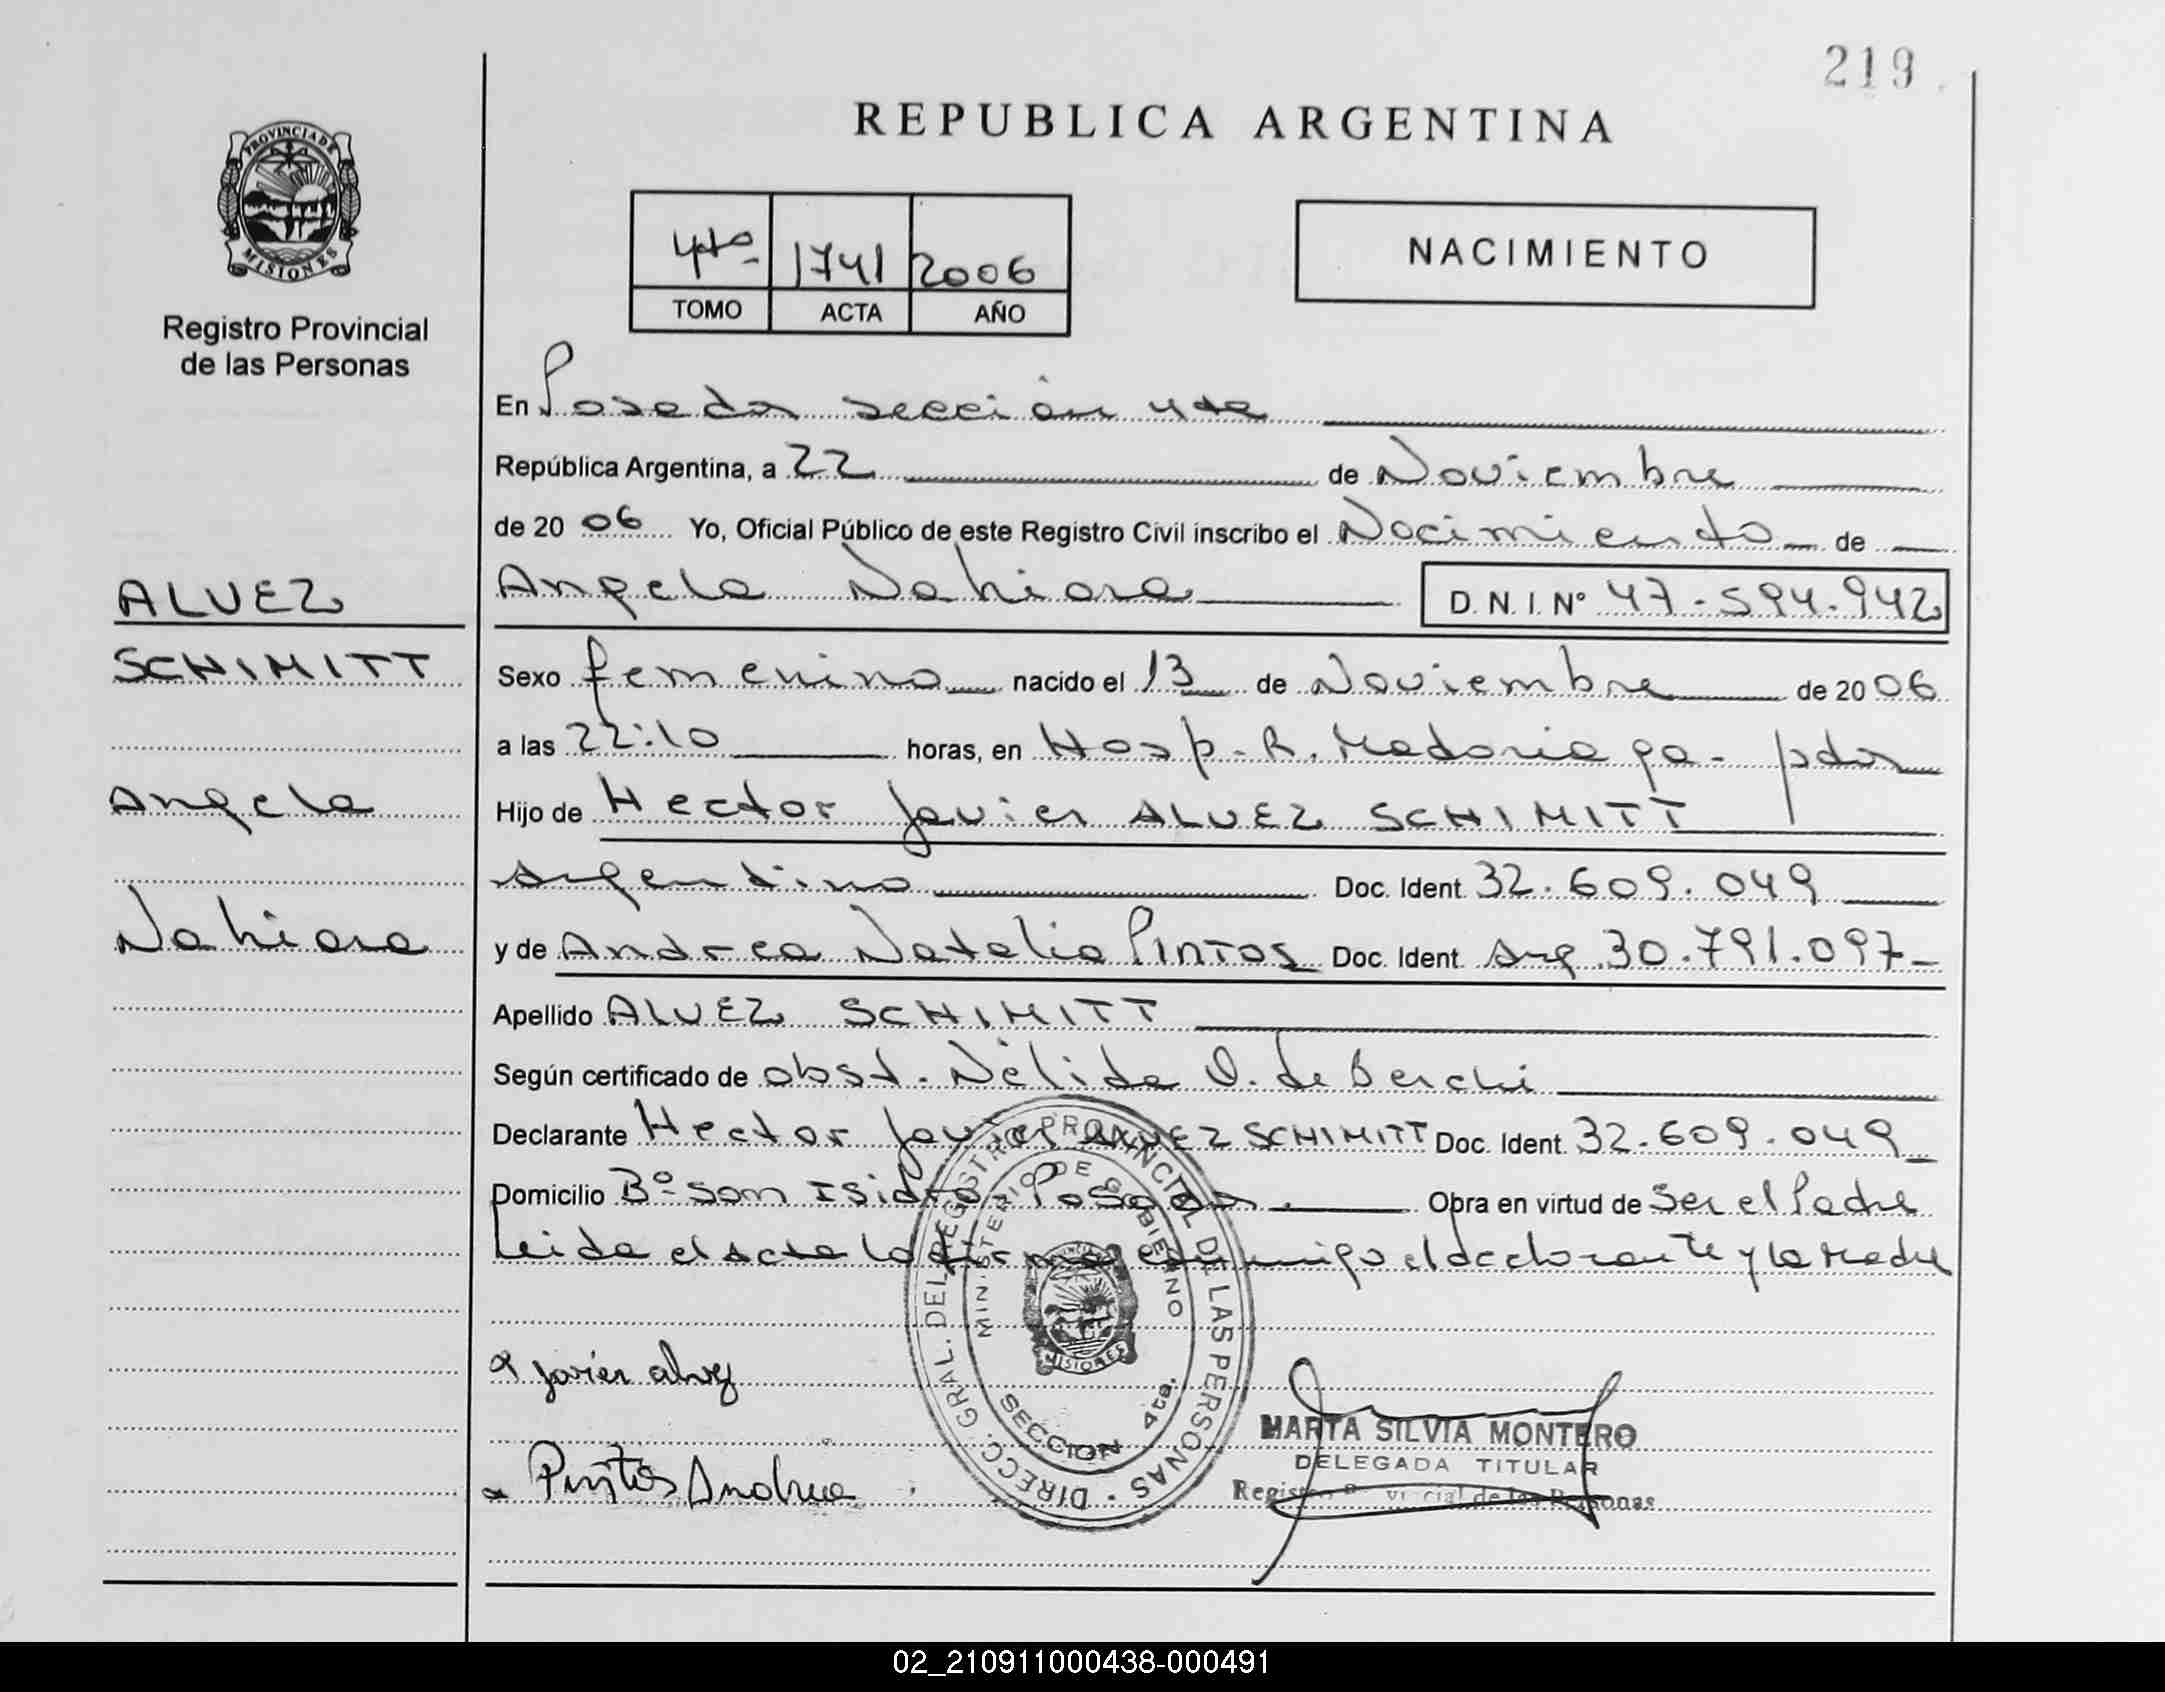 219
REPUBLICA ARGENTINA
PROVINCIA DE
MISIONES
Registro Provincial
de las Personas
4to 1741 2006
TOMO ACTA AÑO
NACIMIENTO
En Posadas sección 4ta
República Argentina, a 22 de Noviembre
de 2006 Yo, Oficial Público de este Registro Civil inscribo el Nacimiento de
Angela Nahiara D. N. I. Nº 47.594.942
Sexo femenino nacido el 13 de Noviembre de 2006
a las 22:10 horas, en Hosp. R. Madariaga - pdas
Hijo de Hector Javier ALVEZ SCHIMITT
argentino Doc. Ident. 32.609.049
y de Andrea Natalia PINTOS Doc. Ident. Arg 30.791.097
Apellido ALVEZ SCHIMITT
Según certificado de obst. Nélida O. de Berchi
Declarante Hector Javier ALVEZ SCHIMITT Doc. Ident. 32.609.049
Domicilio Bº San Isidro - Posadas. Obra en virtud de Ser el Padre
Leida el acta la firma conmigo el declarante y la Madre
ALVEZ
SCHIMITT
Angela
Nahiara
Javier Alvez
Pintos Andrea
DIRECC. GRAL. DEL REGISTRO PROVINCIAL DE LAS PERSONAS
MINISTERIO DE GOBIERNO
MISIONES
SECCION 4ta.
MARTA SILVIA MONTERO
DELEGADA TITULAR
Registro Provincial de las Personas
02_210911000438-000491